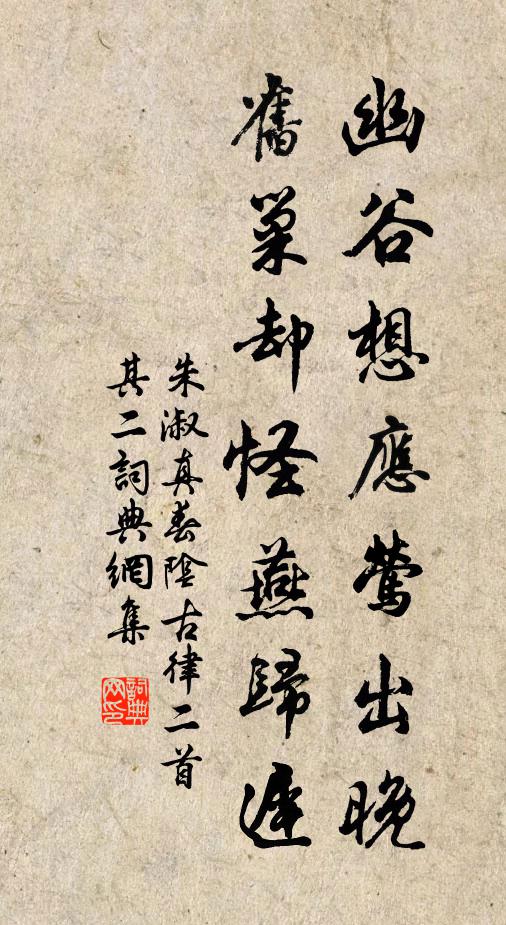 幽谷想應鶯出晚
舊巢却怪燕歸遲
朱淑真春陰古律二首
其二詞典網集
詞典
网印